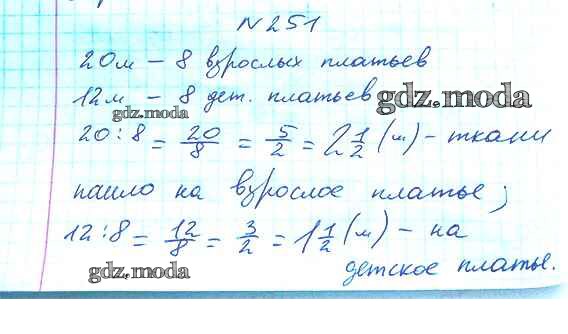 N 251
20м – 8 взрослых платьев
12м – 8 дет. платьев
gdz.moda
gdz.moda
20 : 8 = 20/8 = 5/2 = 2 1/2 (м) – ткани
пашло на взрослое платье;
12 : 8 = 12/8 = 3/2 = 1 1/2 (м) – на
gdz.moda
детское платье.